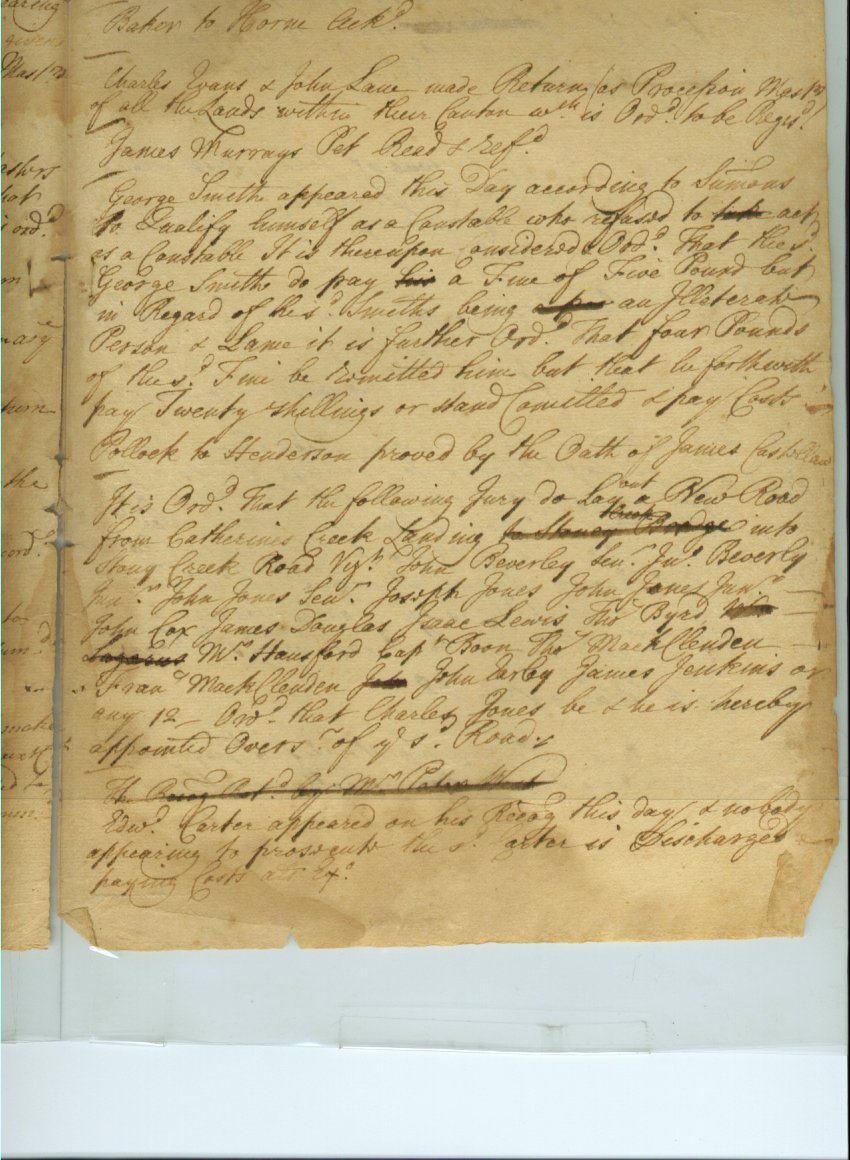 Baker to Horne Ackd.
Charles Evans & John Lane made Return (as Procession Mastrs
of all the Lands within their Canton wch. is Ordd. to be Regisd.)
James Murrays Pet Read & refd.
George Smith appeared this Day according to Sumons
to Qualify himself as a Constable who refused to act
as a Constable It is thereupon Considered & Ordd. That the sd.
George Smith do pay his a Fine of Five Pound but
in Regard of the sd. Smiths being an Illeterate
Person & Lame it is further Ordd. That four Pounds
of the sd. Fine be remitted him but that he forthwith
pay Twenty shillings or stand Comitted & pay Costs
Pollock to Henderson proved by the Oath of James Castellaw
It is Ordd. That the following Jury do Lay out a New Road
from Catherines Creek Landing to Stoney Creek Bridge into
Stony Creek Road Vizt. John Beverley Senr. Jno. Beverly
Junr. John Jones Senr. Joseph Jones John Jones Junr.
John Cox James Douglas Isaac Lewis Thos Byrd Wm
Lazarus Wm. Hansford Capt Boon Thos MackClenden
Frans MackClenden John John Earley James Jenkins or
any 12 - Ordd. that Charles Jones be & he is hereby
appointed Oversr. of ye sd. Road.
Edwd. Carter appeared on his Recog this day & nobody
appearing to prosecute the sd. Carter is Discharged
paying Costs als Exo.